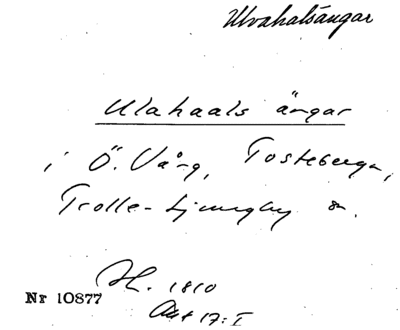 Ulvahalsängar
Ulahaals ängar
i Ö. Vång, Tosteberga,
Trolle-Ljungby sn.
Sk. 1810
Nr 10877
Akt 17:I